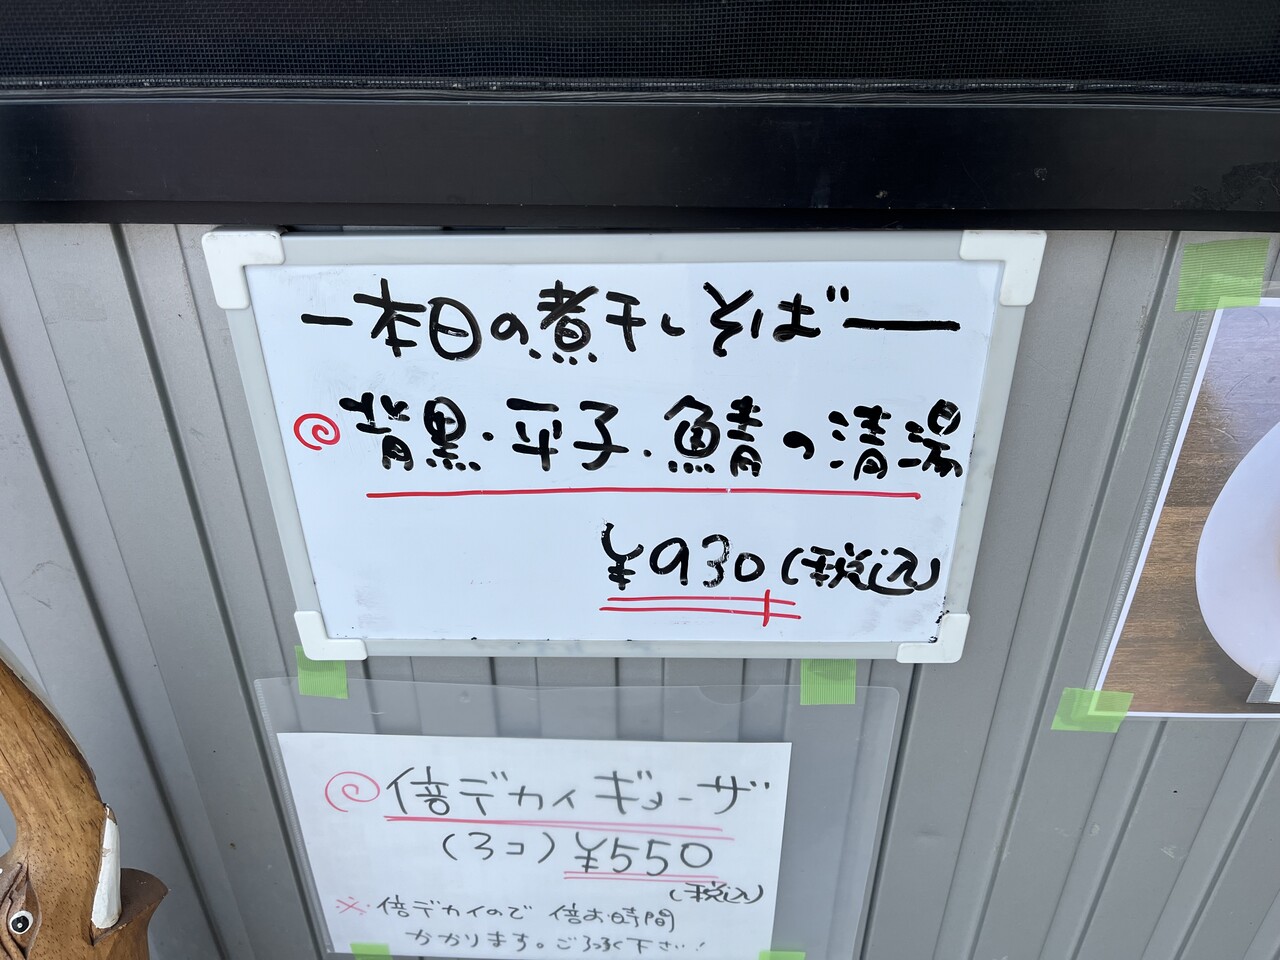 ー本日の煮干しそばー
背黒・平子・鯖の清湯
¥930(税込)
倍デカイギョーザ
(3コ)¥550
(税込)
※倍デカイので 倍お時間
かかります。ご了承下さい!